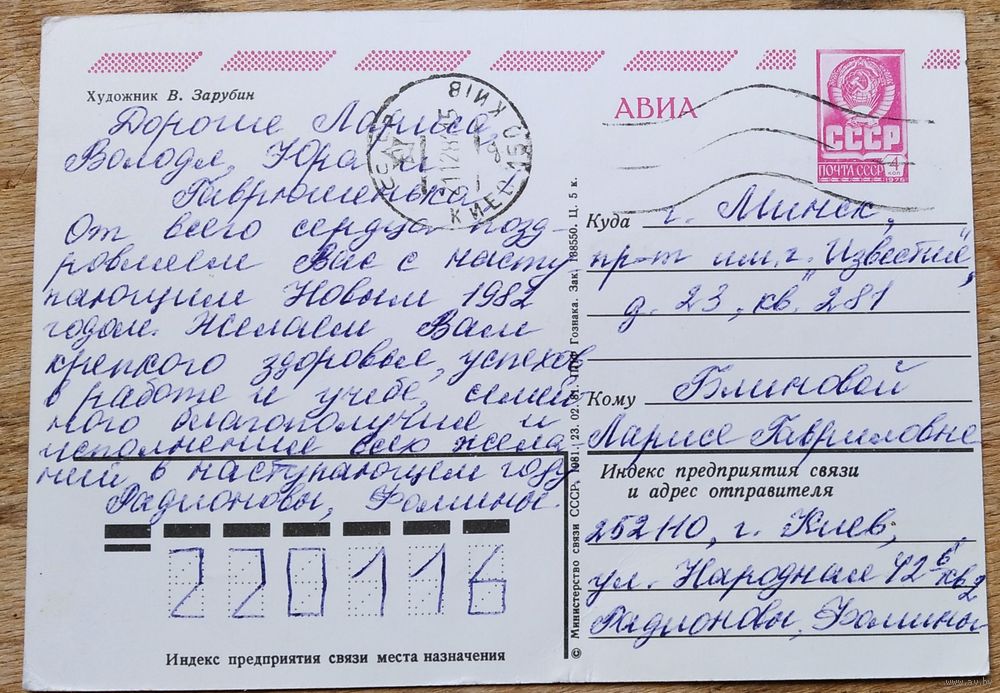 Художник В. Зарубин
Дорогие Лариса,
Володя, Юра и
Гаврюшенька.
От всего сердца позд-
ровляем Вас с насту
пающим Новым 1982
годом. Желаем Вам
крепкого здоровья, успехов
в работе и учебе, семей
ного благополучия и
исполнения всех жела
ний в наступающем году
Радионовы, Фомины.
220116
Индекс предприятия связи места назначения
КИЇВ
АВИА
СССР
ПОЧТА СССР
4 коп
Куда г. Минск,
пр-т им. г. "Известия"
д. 23, кв. 281
Кому Блиновой
Ларисе Гавриловне
Индекс предприятия связи
и адрес отправителя
252110, г. Киев,
ул. Народная 12б кв 2
Радионовы, Фомины
© Министерство связи СССР, 1981. 23. 02. 81. Гознака. Зак. 188550. Ц. 5 к.
www.ay.by